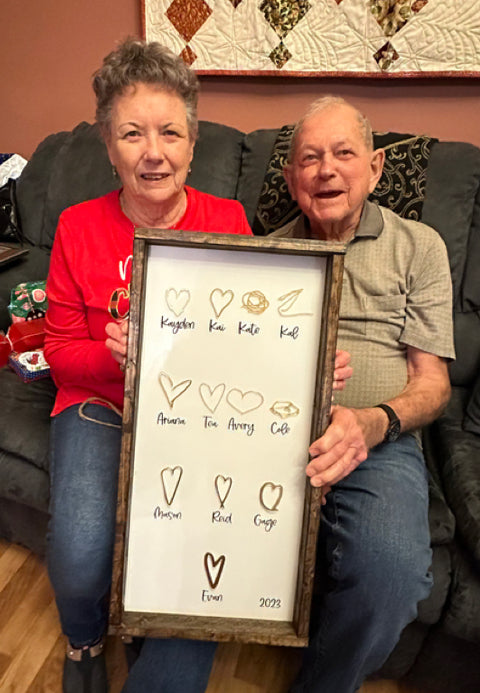 Kayden Kai Kate Kal
Ariana Tea Avery Cole
Mason Reid Gage
Evan
2023